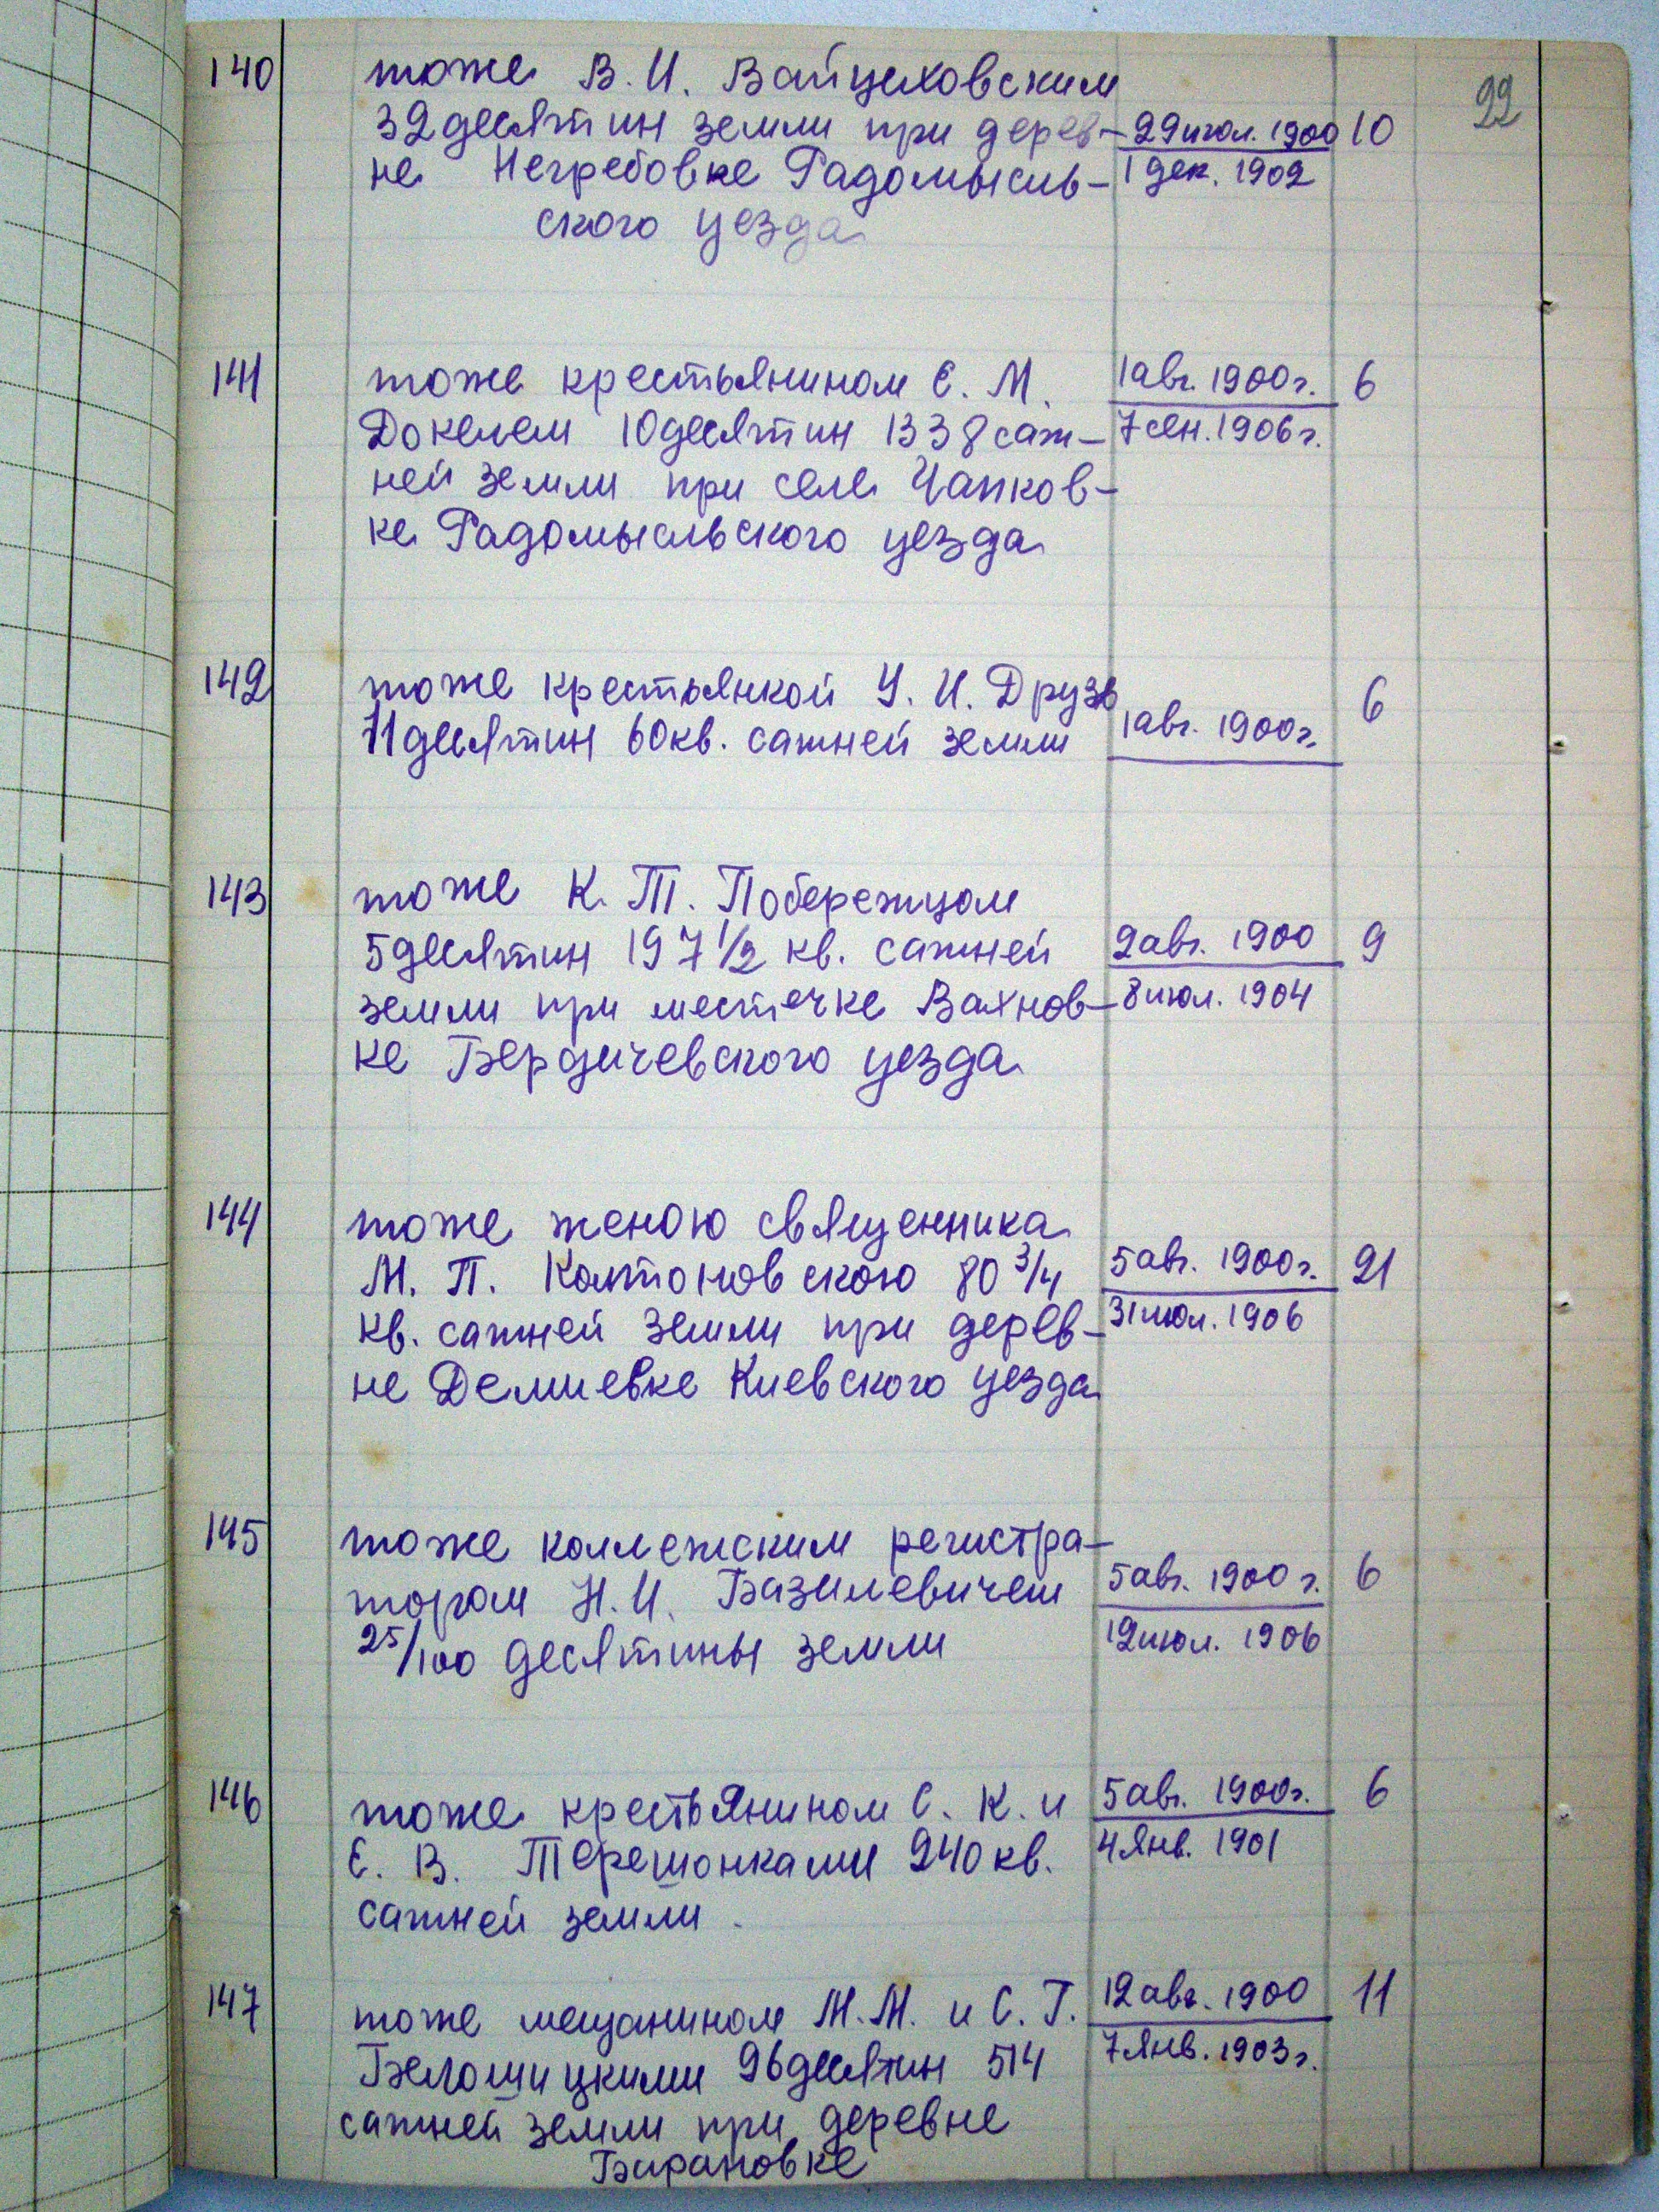 22
140 тоже В. И. Вайцеховским
32 десятин земли при дерев- 29 июл. 1900 10
не Негребовке Радомысль- 1 дек. 1902
ского уезда
141 тоже крестьянином Е. М. 1 авг. 1900 г. 6
Докелем 10 десятин 1338 саж- 7 сен. 1906 г.
ней земли при селе Чапков-
ке Радомысльского уезда
142 тоже крестьянкой У. И. Друзь 6
11 десятин 60 кв. сажней земли 1 авг. 1900 г.
143 тоже К. Т. Побережцом
5 десятин 197 1/2 кв. сажней 2 авг. 1900 9
земли при местечке Вахнов- 8 июл. 1904
ке Бердичевского уезда
144 тоже женою священника
М. П. Колтоновскою 80 3/4 5 авг. 1900 г. 21
кв. сажней земли при дерев- 31 июл. 1906
не Демиевке Киевского уезда
145 тоже коллежским регистра-
тором Н. И. Базилевичем 5 авг. 1900 г. 6
25/100 десятины земли 12 июл. 1906
146 тоже крестьянином С. К. и 5 авг. 1900 г. 6
Е. В. Терешонками 240 кв. 4 янв. 1901
сажней земли.
147 тоже мещанином М. М. и С. Г. 12 авг. 1900 11
Белошицкими 96 десятин 514 7 янв. 1903 г.
сажней земли при деревне
Барановке